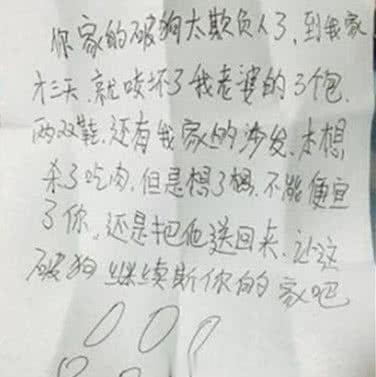 你家的破狗太欺负人了，到我家
才三天.就咬坏了我老婆的3个包.
两双鞋.还有我家的沙发.本想
杀了吃肉.但是想了想.不能便宜
了你.还是把他送回来.让这
破狗继续斯你的家吧